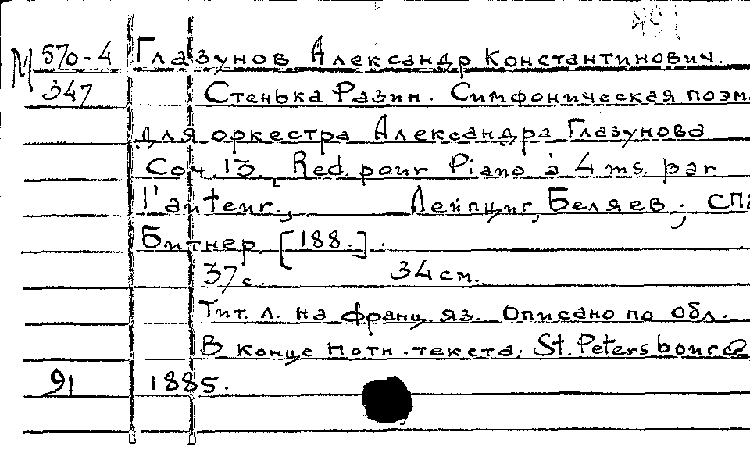 М 570-4 Глазунов Александр Константинович.
347 Стенька Разин. Симфоническая поэм
для оркестра Александра Глазунова
Соч. 13. Red. pour Piano à 4 ms. par
l'auteur., Лейпциг, Беляев; СПб
Битнер [188.].
37 с. 34 см.
Тит. л. на франц. яз. Описано по обл.
В конце нотн. текста: St. Petersbourg
91 1885.